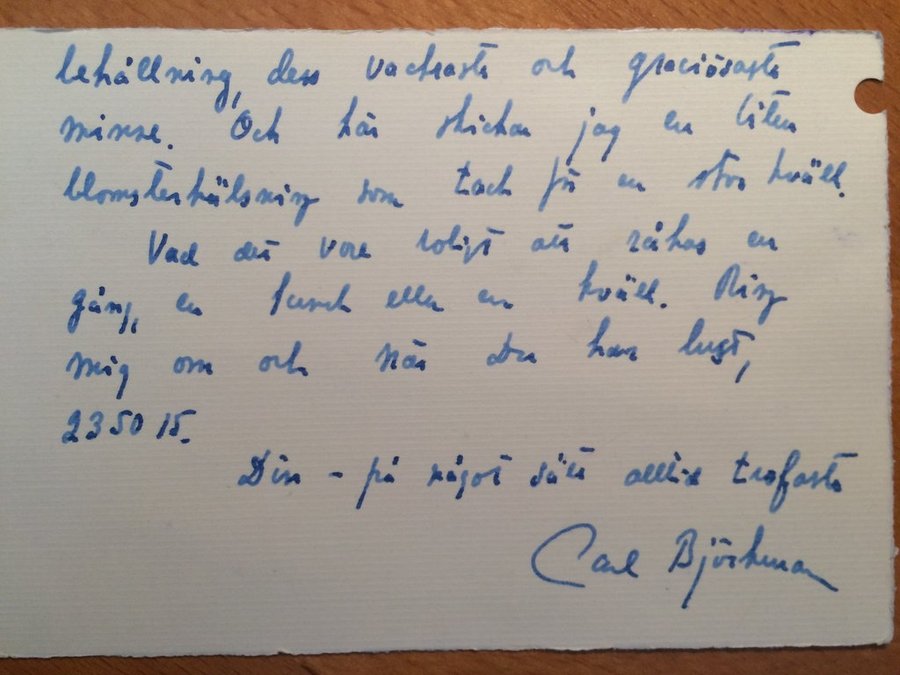 behållning, dess vackraste och graciösaste
minne. Och här skickar jag en liten
blomsterhälsning som tack för en stor kväll.
Vad det vore roligt att råkas en
gång, en lunch eller en kväll. Ring
mig om och när Du har lust,
235015.
Din – på något sätt alltid trofaste
Carl Björkman